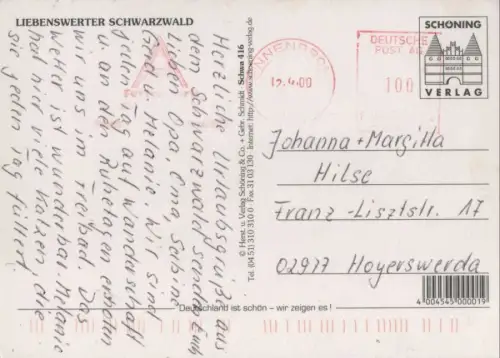 LIEBENSWERTER SCHWARZWALD
Herzliche Urlaubsgrüße aus
dem Schwarzwald senden Euch
Lieben Opa, Oma, Sabine
Gerd u. Melanie. Wir sind
jeden Tag auf Wanderschaft
u. an den Ruhetagen erholen
wir uns im Freibad. Das
Wetter ist wunderbar. Melanie
hat hier viele Katzen, die
sie jeden Tag füttert.
© Herst. u. Verlag Schöning & Co. + Gebr. Schmidt
Tel. (04 51) 310 310 Fax 31 03 130
Schwa 416
Internet: http://www.schoening-verlag.de
DEUTSCHE
POST AG
100
SCHÖNING
VERLAG
Johanna + Margitta
Hilse
Franz-Lisztstr. 17
02977 Hoyerswerda
4 004545 000019
Deutschland ist schön – wir zeigen es!